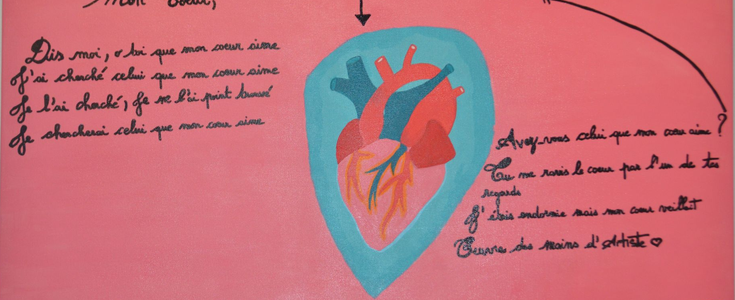 Mon cœur,
Dis moi, o toi que mon cœur aime
J'ai cherché celui que mon cœur aime
Je l'ai cherché, Je ne l'ai point trouvé
Je chercherai celui que mon cœur aime
Avez-vous celui que mon cœur aime ?
Tu me ravis le coeur par l'un de tes
regards
J'étais endormie mais mon cœur veillait
Œuvre des mains d'Artiste ♡